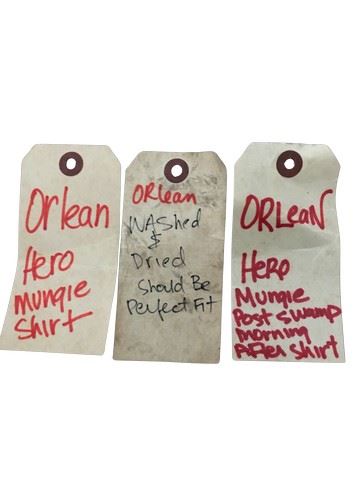 Orlean
Hero
mungie
shirt
ORlean
WAShed
&
Dried
Should Be
Perfect Fit
ORLeaN
HeRO
Mungie
Post swamp
morning
After shirt